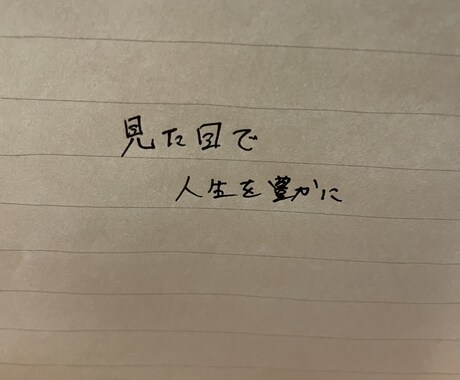 見た目で
人生を豊かに